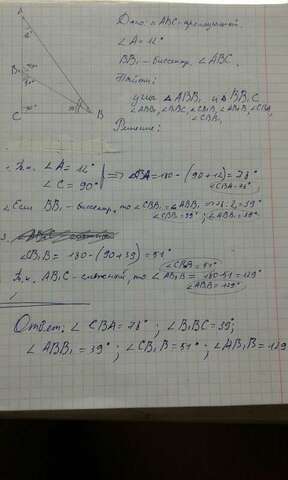 A
B₁
C
B
90°
Дано: ▵ABC-прямоугольный.
∠A=12°
BB₁-биссектр. ∠ABC.
Найти:
углы ▵ABB₁ и ▵BB₁C
Решение:
Т.к. ∠A=12°
∠C=90° ⇒ ∠CBA=180-(90+12)=78°
∠CBA=78°;
Если BB₁-биссектр., то ∠CBB₁=∠ABB₁=78:2=39°
∠CBB₁=39°; ∠ABB₁=39°
3.
∠CB₁B=180-(90+39)=51°
∠CB₁B=51°
Т.к. AB₁C-смежный, то ∠AB₁B=180-51=129°
∠AB₁B=129°
Ответ: ∠CBA=78°; ∠B₁BC=39°;
∠ABB₁=39°; ∠CB₁B=51°; ∠AB₁B=129